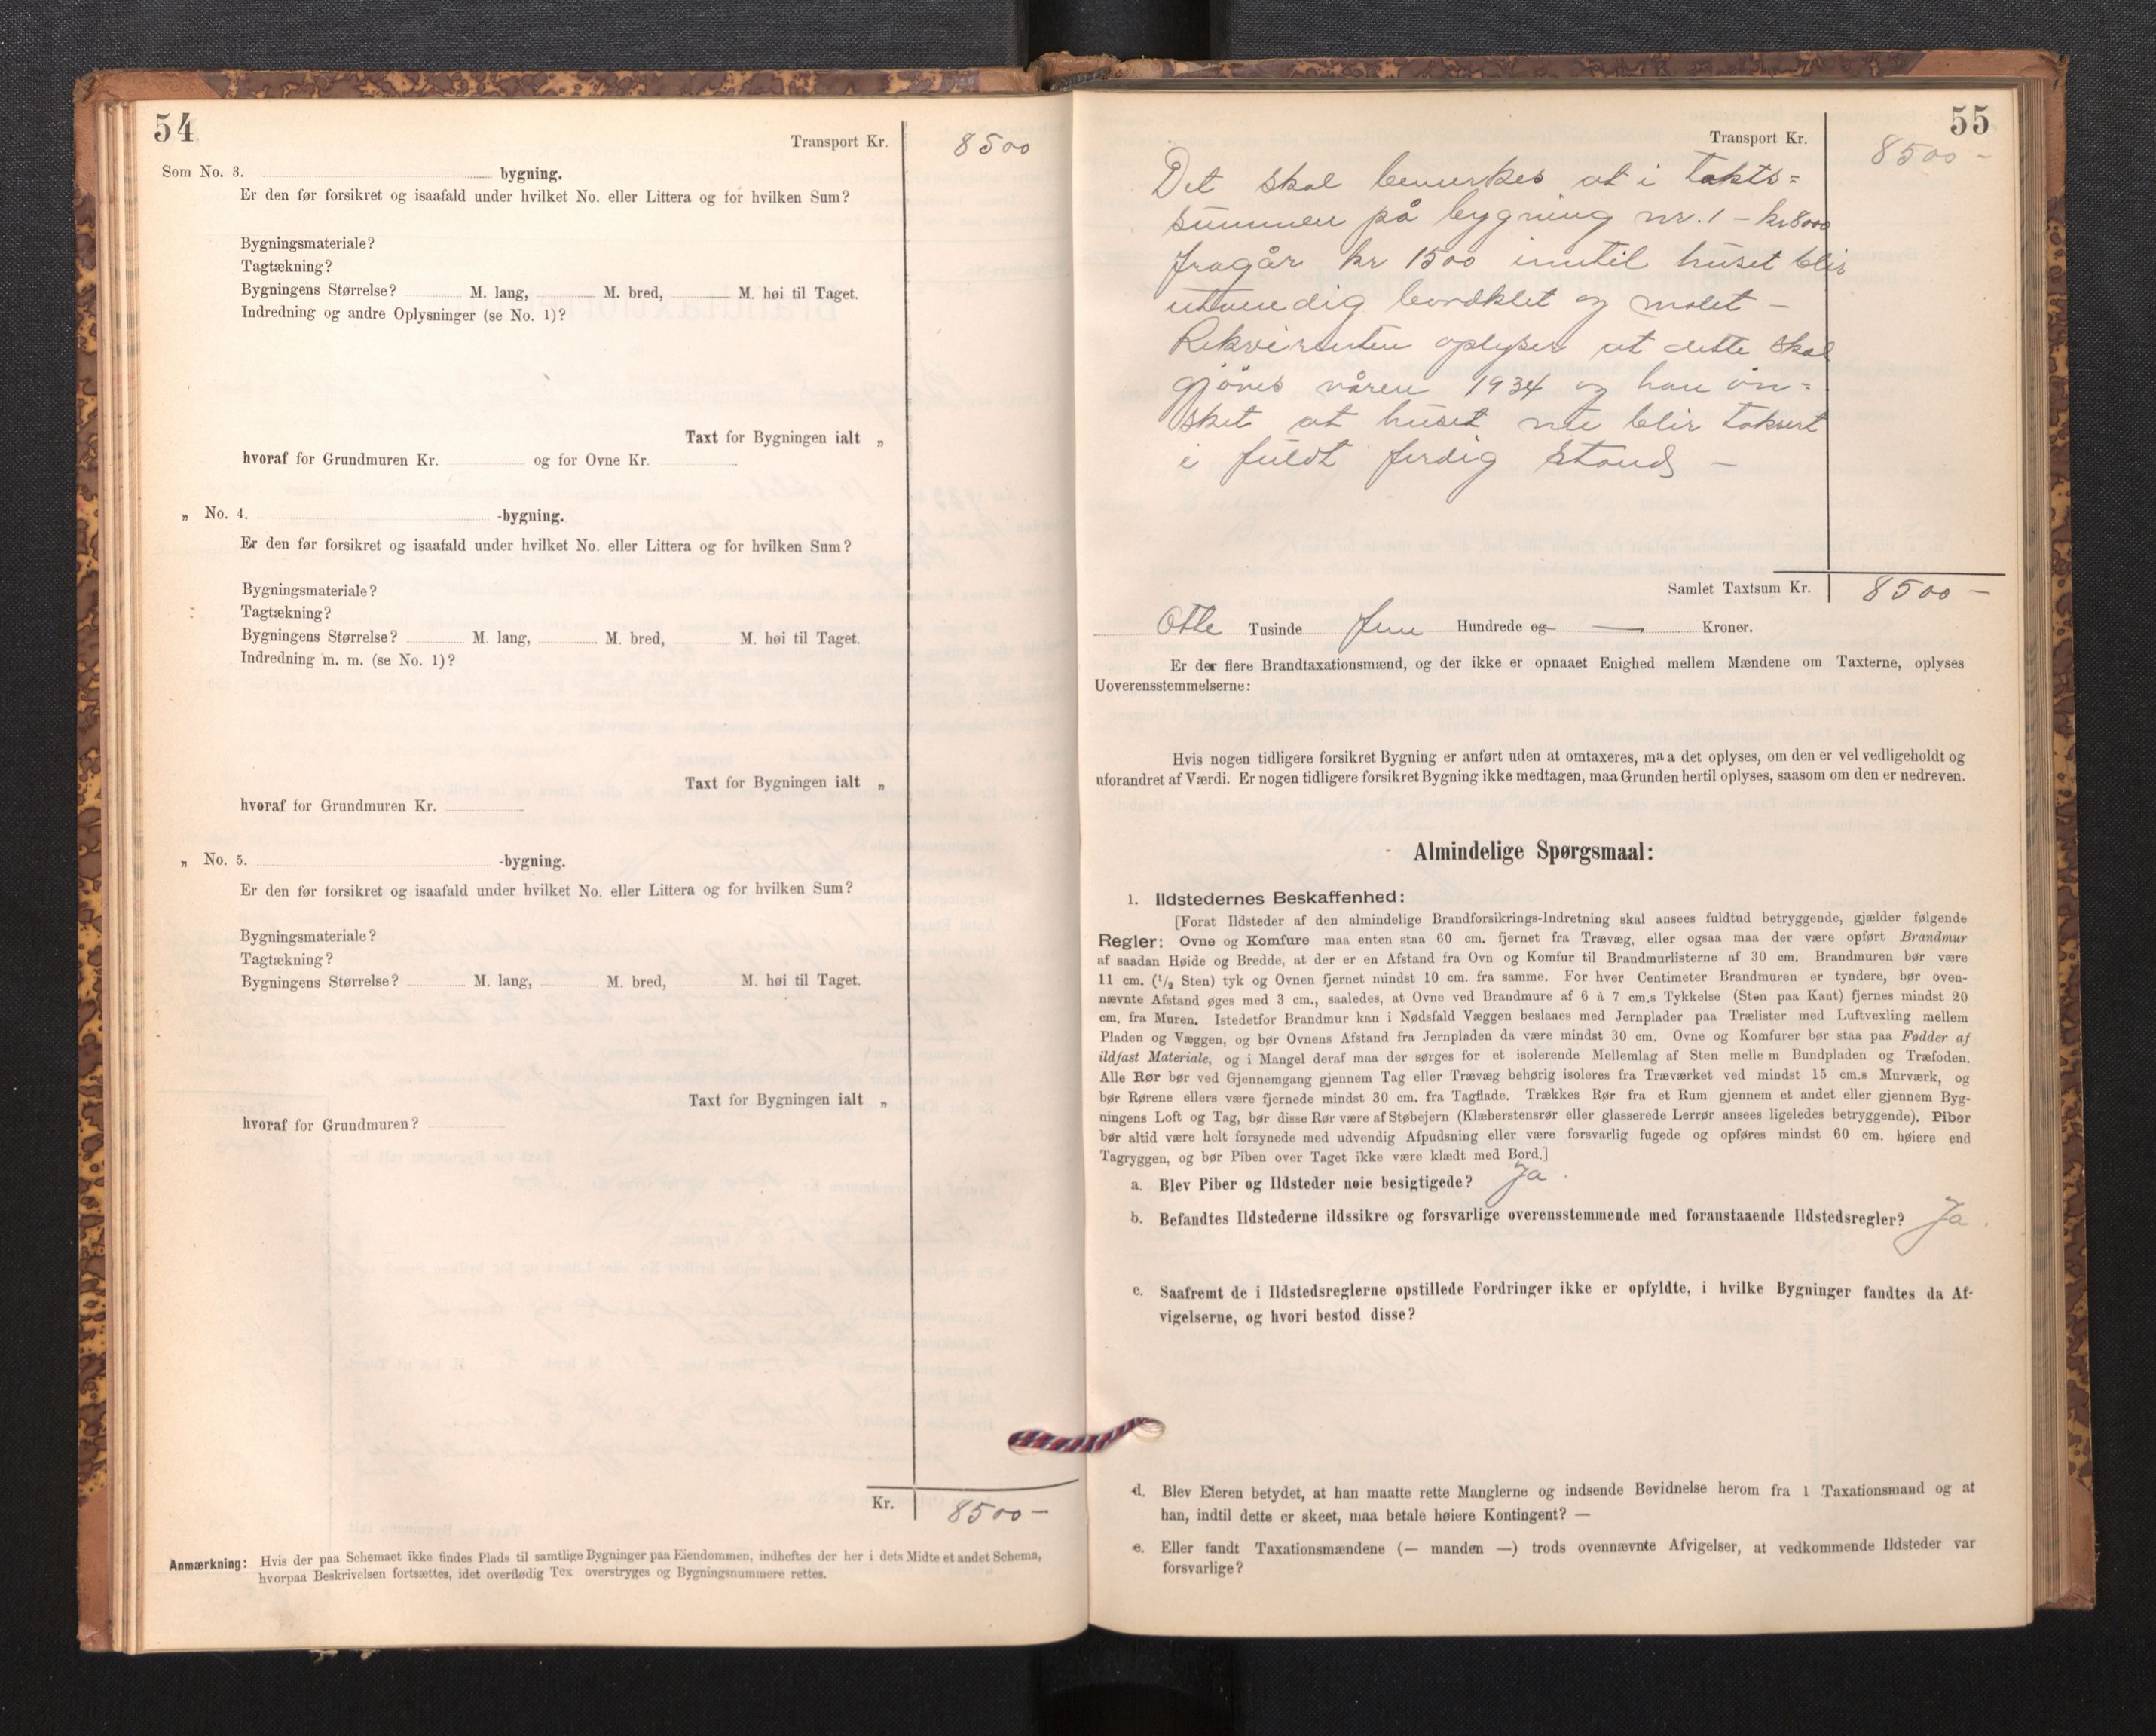 54
Transport Kr. 8500
Som No. 3. bygning.
Er den før forsikret og isaafald under hvilket No. eller Littera og for hvilken Sum?
Bygningsmateriale?
Tagtækning?
Bygningens Størrelse? M. lang, M. bred, M. høi til Taget.
Indredning og andre Oplysninger (se No. 1)?
Taxt for Bygningen ialt „
hvoraf for Grundmuren Kr. og for Ovne Kr.
„ No. 4. -bygning.
Er den før forsikret og isaafald under hvilket No. eller Littera og for hvilken Sum?
Bygningsmateriale?
Tagtækning?
Bygningens Størrelse? M. lang, M. bred, M. høi til Taget.
Indredning m. m. (se No. 1)?
Taxt for Bygningen ialt „
hvoraf for Grundmuren Kr.
„ No. 5. -bygning.
Er den før forsikret og isaafald under hvilket No. eller Littera og for hvilken Sum?
Bygningsmateriale?
Tagtækning?
Bygningens Størrelse? M. lang, M. bred, M. høi til Taget.
Taxt for Bygningen ialt „
hvoraf for Grundmuren?
Kr. 8500 -
Anmærkning: Hvis der paa Schemaet ikke findes Plads til samtlige Bygninger paa Eiendommen, indheftes der her i dets Midte et andet Schema,
hvorpaa Beskrivelsen fortsættes, idet overflødig Tex overstryges og Bygningsnummere rettes.
55
Transport Kr. 8500 -
Det skal bemerkes at i takts=
summen på bygning nr. 1 - kr 8000
fragår kr 1500 inntil huset blir
utvendig bordklet og malet -
Rekvirenten oplyser at dette skal
gjøres våren 1934 og han øn=
sket at huset nu blir taksert
i fuldt ferdig stand -
Samlet Taxtsum Kr. 8500 -
Otte Tusinde fem Hundrede og — Kroner.
Er der flere Brandtaxationsmænd, og der ikke er opnaaet Enighed mellem Mændene om Taxterne, oplyses
Uoverensstemmelserne:
Hvis nogen tidligere forsikret Bygning er anført uden at omtaxeres, maa det oplyses, om den er vel vedligeholdt og
uforandret af Værdi. Er nogen tidligere forsikret Bygning ikke medtagen, maa Grunden hertil oplyses, saasom om den er nedreven.
Almindelige Spørgsmaal:
1. Ildstedernes Beskaffenhed:
[Forat Ildsteder af den almindelige Brandforsikrings-Indretning skal ansees fuldtud betryggende, gjælder følgende
Regler: Ovne og Komfure maa enten staa 60 cm. fjernet fra Trævæg, eller ogsaa maa der være opført Brandmur
af saadan Høide og Bredde, at der er en Afstand fra Ovn og Komfur til Brandmurlisterne af 30 cm. Brandmuren bør være
11 cm. (1/2 Sten) tyk og Ovnen fjernet mindst 10 cm. fra samme. For hver Centimeter Brandmuren er tyndere, bør oven-
nævnte Afstand øges med 3 cm., saaledes, at Ovne ved Brandmure af 6 à 7 cm.s Tykkelse (Sten paa Kant) fjernes mindst 20
cm. fra Muren. Istedetfor Brandmur kan i Nødsfald Væggen beslaaes med Jernplader paa Trælister med Luftvexling mellem
Pladen og Væggen, og bør Ovnens Afstand fra Jernpladen da være mindst 30 cm. Ovne og Komfurer bør staa paa Fødder af
ildfast Materiale, og i Mangel deraf maa der sørges for et isolerende Mellemlag af Sten mellem Bundpladen og Træfoden.
Alle Rør bør ved Gjennemgang gjennem Tag eller Trævæg behørig isoleres fra Træværket ved mindst 15 cm.s Murværk, og
bør Rørene ellers være fjernede mindst 30 cm. fra Tagflade. Trækkes Rør fra et Rum gjennem et andet eller gjennem Byg-
ningens Loft og Tag, bør disse Rør være af Støbejern (Klæberstensrør eller glasserede Lerrør ansees ligeledes betryggende). Piber
bør altid være helt forsynede med udvendig Afpudsning eller være forsvarlig fugede og opføres mindst 60 cm. høiere end
Tagryggen, og bør Piben over Taget ikke være klædt med Bord.]
a. Blev Piber og Ildsteder nøie besigtigede? Ja.
b. Befandtes Ildstederne ildssikre og forsvarlige overensstemmende med foranstaaende Ildstedsregler? Ja.
c. Saafremt de i Ildstedsreglerne opstillede Fordringer ikke er opfyldte, i hvilke Bygninger fandtes da Af-
vigelserne, og hvori bestod disse?
d. Blev Eieren betydet, at han maatte rette Manglerne og indsende Bevidnelse herom fra 1 Taxationsmand og at
han, indtil dette er skeet, maa betale høiere Kontingent? —
e. Eller fandt Taxationsmændene (— manden —) trods ovennævnte Afvigelser, at vedkommende Ildsteder var
forsvarlige?